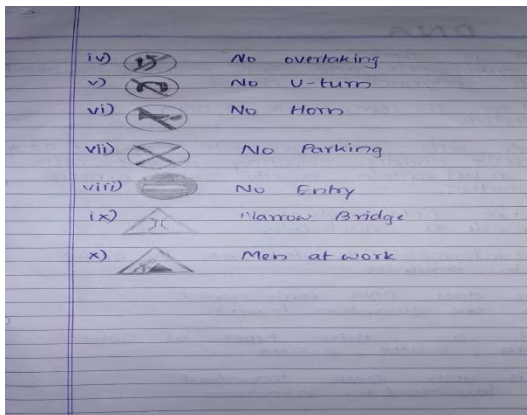 iv) No overtaking
v) No U-turn
vi) No Horn
vii) No Parking
viii) No Entry
ix) Narrow Bridge
x) Men at work